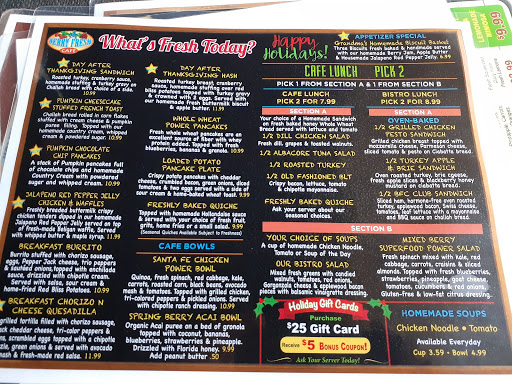 BERRY FRESH
CAFE
What's Fresh Today?
DAY AFTER
THANKSGIVING SANDWICH
Roasted turkey, cranberry sauce,
homemade stuffing & turkey gravy on
Challah bread with choice of side.
PUMPKIN CHEESECAKE
STUFFED FRENCH TOAST
Challah bread rolled in corn flakes
stuffed with cream cheese & pumpkin
puree. Topped with our
homemade country cream, whipped
cream & powdered sugar.
PUMPKIN CHOCOLATE
CHIP PANCAKES
A stack of Pumpkin pancakes full
of chocolate chips and homemade
Country Cream with powdered
sugar and whipped cream. 10.99
JALAPENO RED PEPPER JELLY
CHICKEN & WAFFLES
Freshly breaded buttermilk crispy
chicken tenders dipped in our homemade
Jalapeno Red Pepper Jelly served on top
of fresh-made Belgian waffle. Served
with whipped butter & maple syrup. 11.99
BREAKFAST BURRITO
Burrito stuffed with chorizo sausage,
eggs, Pepper Jack cheese, trio peppers
& sautéed onions, topped with enchilada
sauce, drizzled with chipotle cream.
Served with salsa, sour cream &
home-fried Red Bliss Potatoes. 10.99
BREAKFAST CHORIZO N
CHEESE QUESADILLA
grilled tortilla filled with chorizo sausage,
cheddar cheese, tri-color peppers &
scrambled eggs topped with a chipotle
green onions & served with avocado
& fresh-made red salsa. 11.99
DAY AFTER
THANKSGIVING HASH
Roasted turkey breast, cranberry
sauce, homemade stuffing over red
bliss potatoes topped with turkey gravy
& crowned with 2 eggs. Served with
our homemade fresh buttermilk biscuit
& apple butter. 11.99
WHOLE WHEAT
POWER PANCAKES
Fresh whole wheat pancakes are an
excellent source of fiber, with whey
protein added. Topped with fresh
blueberries, bananas & granola. 10.99
LOADED POTATO
PANCAKE PLATE
Crispy potato pancakes with cheddar
cheese, crumbled bacon, green onions, diced
tomatoes & two eggs served with a side of
sour cream & home-baked biscuit. 10.99
FRESHLY BAKED QUICHE
Topped with homemade Hollandaise sauce
& served with your choice of fresh fruit,
grits, home fries or a small salad. 9.99
(Seasonal Quiches Available Subject to Freshness!)
CAFE BOWLS
SANTA FE CHICKEN
POWER BOWL
Quinoa, fresh spinach, red cabbage, kale,
carrots, roasted corn, black beans, avocado
mash & tomatoes. Topped with grilled chicken,
tri-colored peppers & pickled onions. Served
with chipotle ranch dressing. 10.99
SPRING BERRY ACAI BOWL
Organic Acai puree on a bed of granola
topped with coconut, bananas,
blueberries, strawberries & pineapple.
Drizzled with Florida honey. 9.99
Add peanut butter .50
Happy
Holidays!
APPETIZER SPECIAL
Grandma's Homemade Biscuit Basket
Three Biscuits fresh baked & handmade served
with our homemade Berry Jam, Apple Butter
& Housemade Jalapeno Red Pepper Jelly. 6.99
CAFE LUNCH PICK 2
PICK 1 FROM SECTION A & 1 FROM SECTION B
CAFE LUNCH
PICK 2 FOR 7.99
BISTRO LUNCH
PICK 2 FOR 8.99
SECTION A
Your choice of Homemade Sandwich
on fresh baked honey Whole Wheat
Bread served with lettuce and tomato
1/2 DILL CHICKEN SALAD
Fresh dill, grapes & toasted walnuts.
1/2 ALBACORE TUNA SALAD
1/2 ROASTED TURKEY
1/2 OLD FASHIONED BLT
Crispy bacon, lettuce, tomato
& chipotle mayonnaise.
FRESHLY BAKED QUICHE
Ask your server about our
seasonal choices.
SECTION A
OVEN-BAKED
1/2 GRILLED CHICKEN
PESTO SANDWICH
Grilled chicken breast topped with
mozzarella cheese, Parmesan cheese,
sliced tomato & pesto on Ciabatta bread.
1/2 TURKEY APPLE
& BRIE SANDWICH
Oven roasted turkey, brie cheese,
fresh apple slices & blackberry honey
mustard on ciabatta bread.
1/2 BFC CLUB SANDWICH
Sliced ham, hormone-free oven roasted
turkey, applewood bacon, Swiss cheese,
tomatoes, leaf lettuce with a mayonnaise
and BBQ sauce on challah bread.
SECTION B
YOUR CHOICE OF SOUPS
A cup of homemade Chicken Noodle,
Tomato or Soup of the Day
OUR BISTRO SALAD
Mixed fresh greens with candied
walnuts, tomatoes, red onions,
Gorgonzola cheese & applewood bacon
pieces with balsamic vinaigrette dressing.
MIXED BERRY
SUPERFOOD POWER SALAD
Fresh spinach mixed with kale, red
cabbage, carrots, craisins & sliced
almonds. Topped with fresh blueberries,
strawberries, pineapple, goat cheese,
tomatoes, cucumbers & red onions.
Gluten-free & low-fat citrus dressing.
Holiday Gift Cards
Purchase
$25 Gift Card
Receive $5 BONUS COUPON!
Ask Your Server Today!
HOMEMADE SOUPS
Chicken Noodle • Tomato
Available Everyday
Cup 3.59 • Bowl 4.99